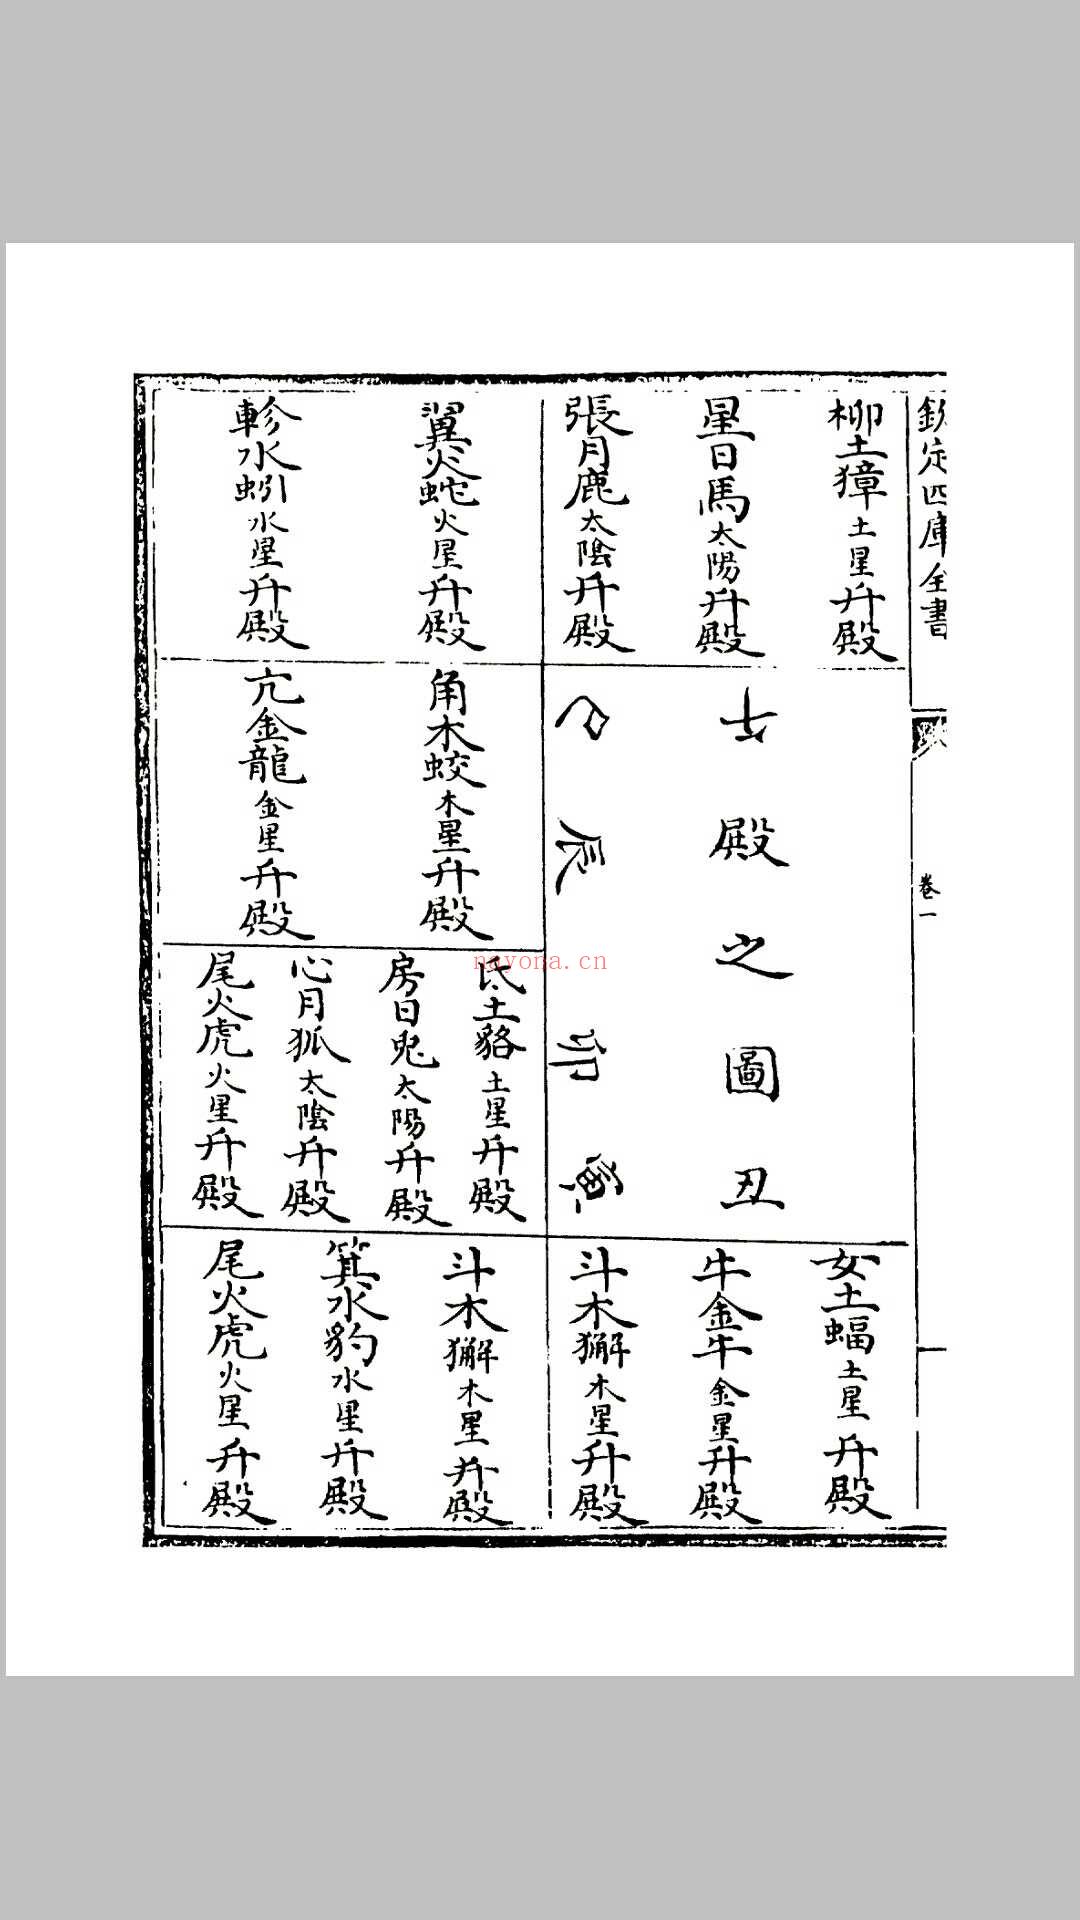 欽定四庫全書
卷一
柳土獐土星升殿
星日馬太陽升殿
張月鹿太陰升殿
翼火蛇火星升殿
軫水蚓水星升殿
七殿之圖丑
巳辰卯寅
角木蛟木星升殿
亢金龍金星升殿
氐土貉土星升殿
房日兔太陽升殿
心月狐太陰升殿
尾火虎火星升殿
女土蝠土星升殿
牛金牛金星升殿
斗木獬木星升殿
斗木獬木星升殿
箕水豹水星升殿
尾火虎火星升殿
nayona.cn